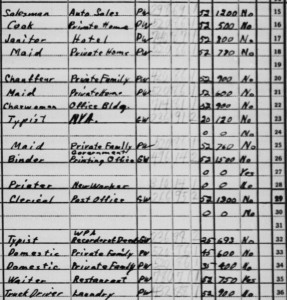 Salesman Auto Sales PW 52 1200 No
Cook Private Home PW 52 500 No 16
Janitor Hotel PW 52 800 No 17
Maid Private Home PW 52 780 No 18
Chauffeur Private Family PW 52 900 No 20
Maid Private Home PW 52 600 No 21
Charwoman Office Bldg. PW 52 900 No 22
Typist N.Y.A. GW 20 120 No 23
0 0 No 24
Maid Private Family PW 52 760 No 25
Government
Binder Printing Office GW 52 1500 No 26
0 0 Yes 27
Printer New Worker 0 0 No 28
Clerical Post Office GW 52 1300 No 29
0 0 No 30
31
WPA
Typist Recorder of Deeds GW 25 693 No 32
Domestic Private Family PW 45 600 No 33
Domestic Private Family PW 35 400 No 34
Waiter Restaurant PW 52 750 Yes 35
Truck Driver Laundry PW 52 900 No 36